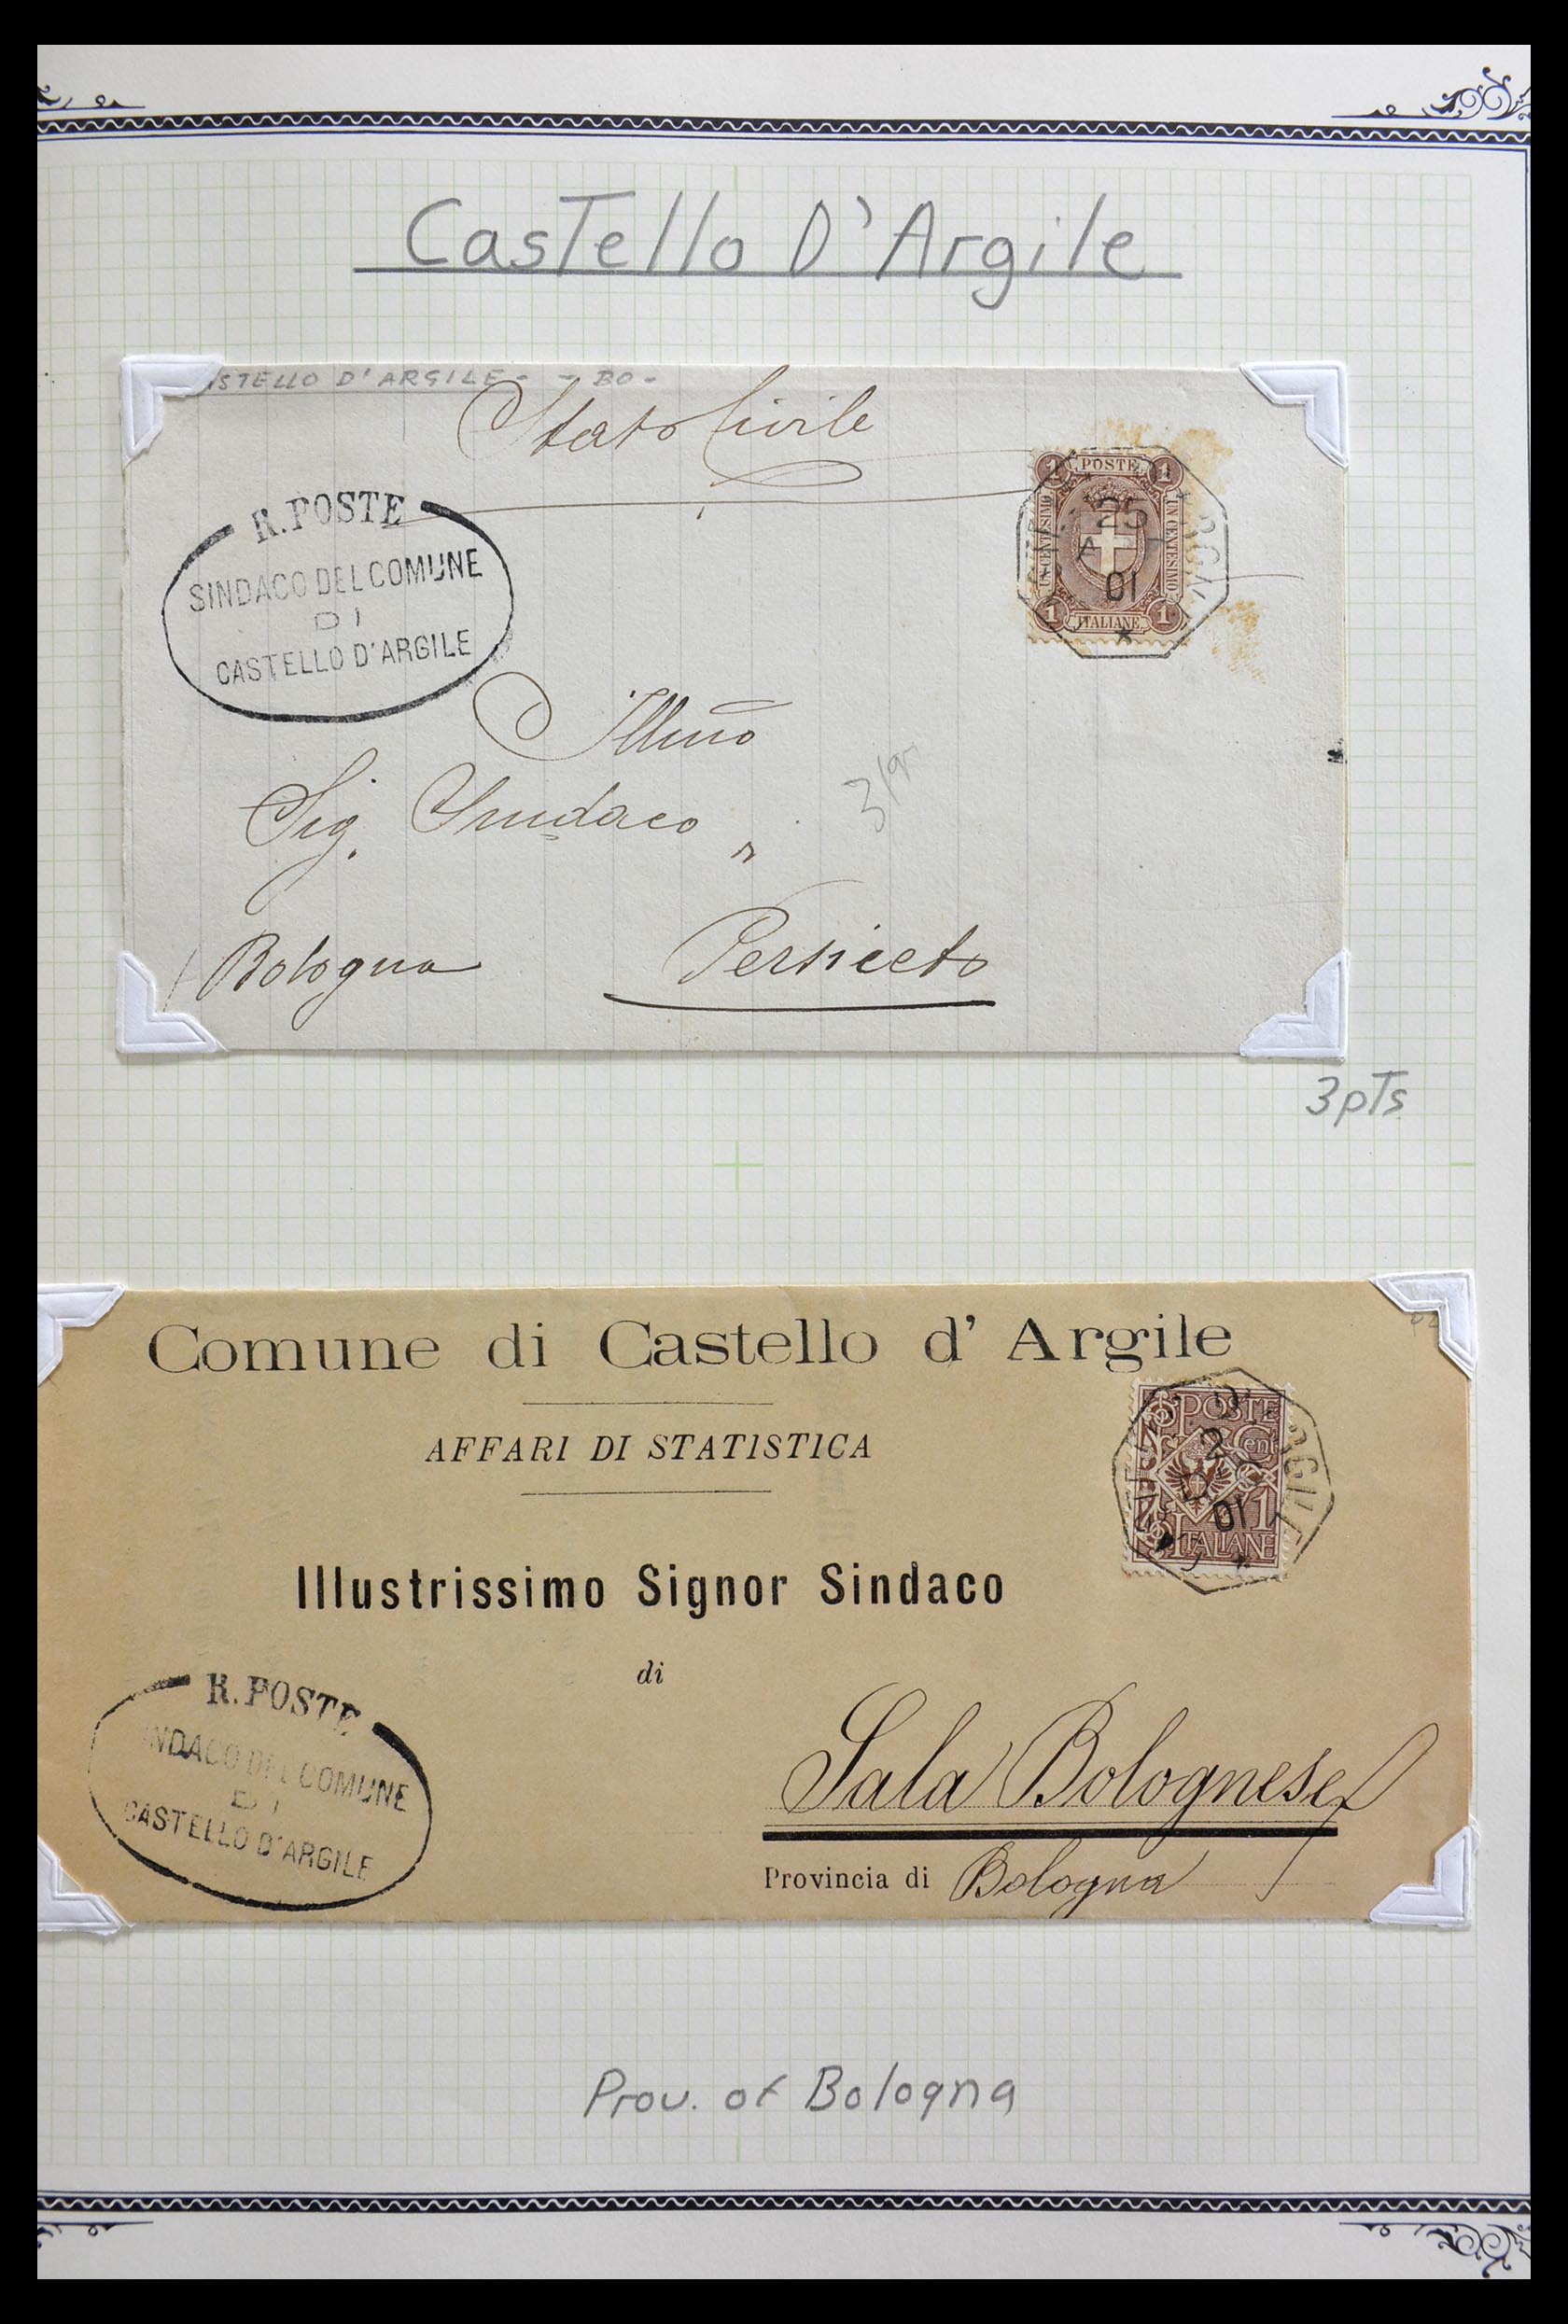 CasTello D'Argile
STELLO D'ARGILE - - BO -
Stato Civile
R. POSTE
SINDACO DEL COMUNE
DI
CASTELLO D'ARGILE
1 POSTE 1
UN CENTESIMO
UN CENTESIMO
25
A
01
1 ITALIANE 1
Illmo
Sig. Sindaco
Bologna
Persiceto
3pTs
Comune di Castello d' Argile
AFFARI DI STATISTICA
POSTE
Cent
2
01
1
ITALIANE
ARGILE
Illustrissimo Signor Sindaco
di
R. POSTE
INDACO DEL COMUNE
DI
CASTELLO D'ARGILE
Sala Bolognese
Provincia di Bologna
Prov. of Bologna